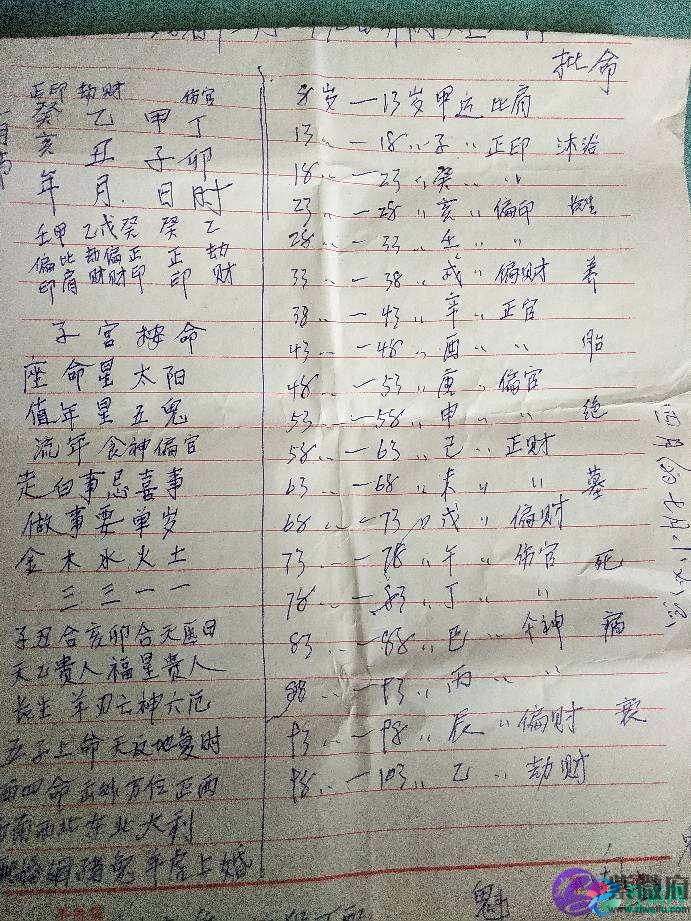 批命
正印 劫财 伤官
癸 乙 甲 丁
亥 丑 子 卯
年 月 日 时
壬甲 乙戊癸 癸 乙
偏比 劫偏正 正 劫
印肩 财财印 印 财
子宫按命
座命星太阳
值年星五鬼
流年食神偏官
走白事忌喜事
做事要单岁
金木水火土
三三一一
子丑合亥卯合天医日
天乙贵人福星贵人
长生羊刃亡神六厄
五子上命天反地复时
西四命 方位正西
南西北东北大利
婚姻猪兔羊虎上婚
8岁一13岁甲运比肩
13〃一18〃子〃正印 沐浴
18〃一23〃癸〃〃
23〃一28〃亥〃偏印 长生
28〃一33〃壬〃〃
33〃一38〃戌〃偏财 养
38〃一43〃辛〃正官
43〃一48〃酉〃〃 胎
48〃一53〃庚〃偏官
53〃一58〃申〃〃 绝
58〃一63〃己〃正财
63〃一68〃未〃〃 墓
68〃一73〃戊〃偏财
73〃一78〃午〃伤官 死
78〃一83〃丁〃〃
83〃一88〃巳〃伞神 病
88〃一93〃丙〃〃
93〃一98〃辰〃偏财 衰
98〃一103〃乙〃劫财
魁
紫微府
www.ziweifu.com